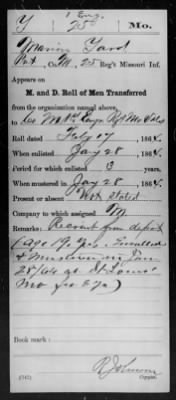 Y 1 Eng. 25 Mo.
Marion Yard
Pvt, Co. M, 25 Reg't Missouri Inf.
Appears on
M. and D. Roll of Men Transferred
from the organization named above,
to Co. M 1st Eng. Mo Vols
Roll dated July 17, 1864.
When enlisted Jany 28, 1864.
Period for which enlisted 3 years.
When mustered in Jany 28, 1864.
Present or absent Not Stated
Company to which assigned M
Remarks: Recruit from depot
(age 19 yrs. Enrolled
& Mustered in Jan
28/64 at St Louis
Mo for 3 yrs)
R Johnson
(542) Copyist.